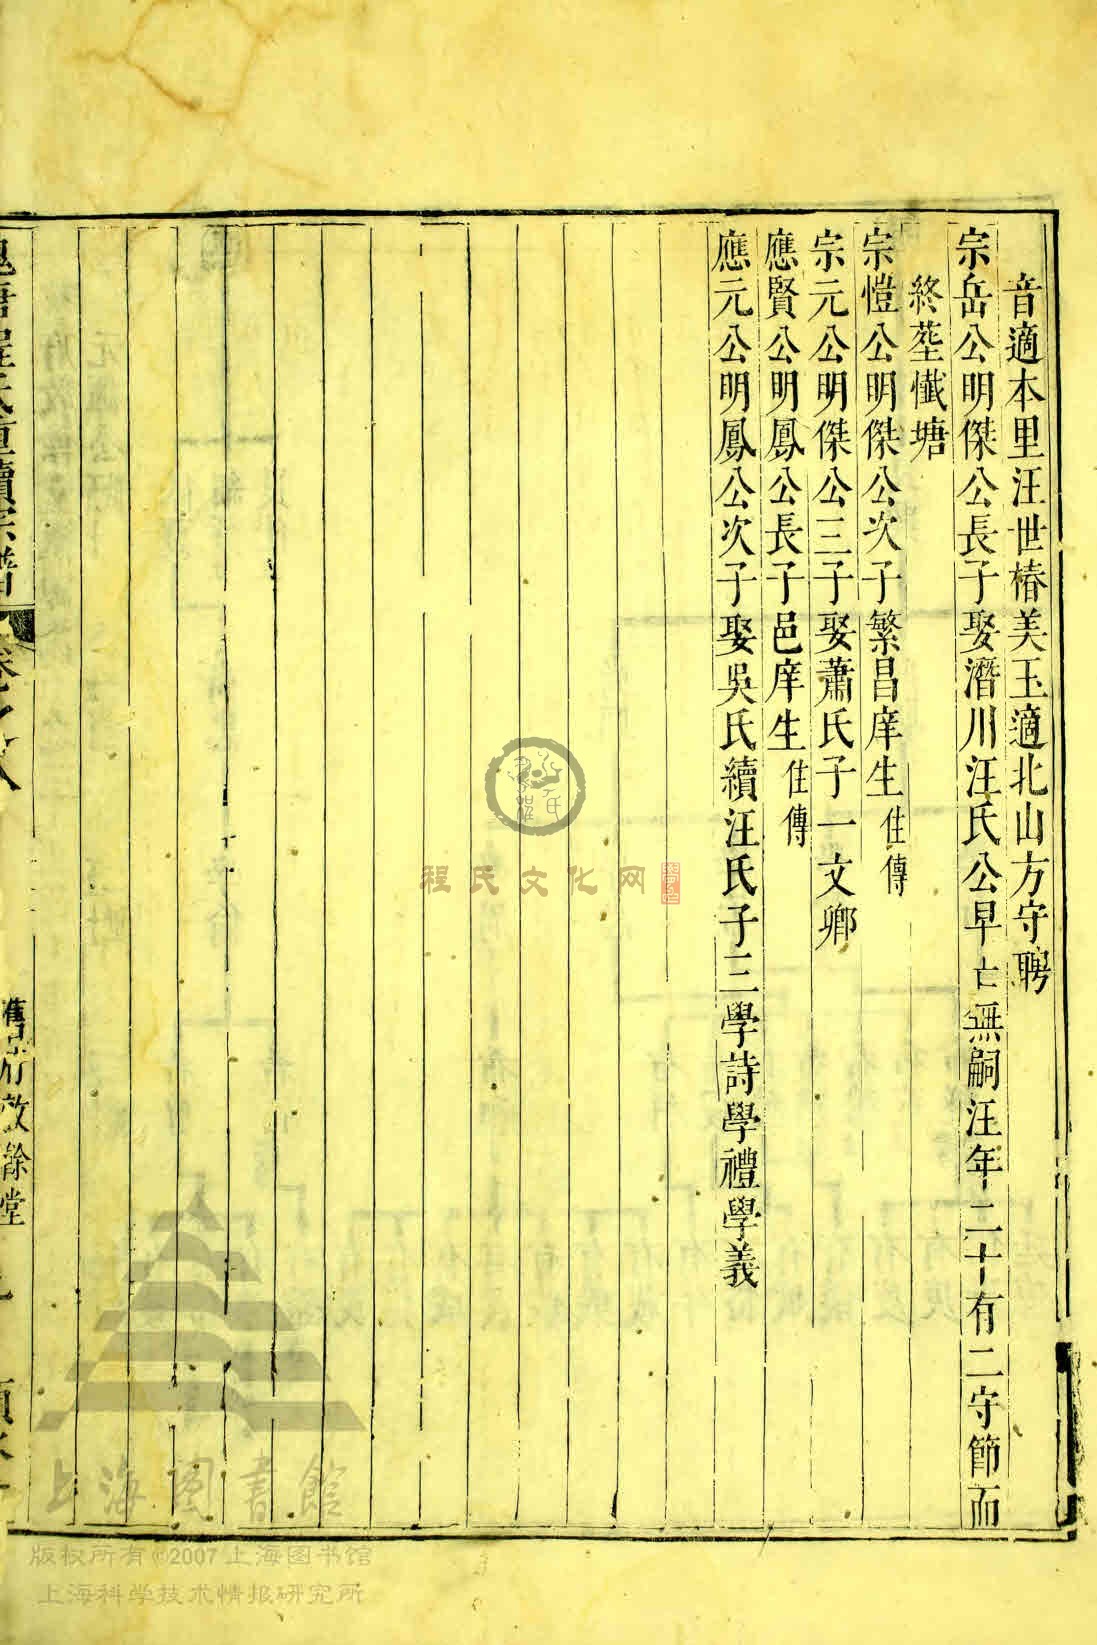 音適本里汪世椿美玉適北山方守聘
宗岳公明傑公長子娶潛川汪氏公早亡無嗣汪年二十有二守節而
終塟懺塘
宗愷公明傑公次子繁昌庠生仕傳
宗元公明傑公三子娶蕭氏子一文卿
應賢公明鳳公長子邑庠生仕傳
應元公明鳳公次子娶吳氏續汪氏子三學詩學禮學義
槐塘程氏重續宗譜
程氏文化网
上海图書館
版权所有©2007上海图书馆
上海科学技术情报研究所